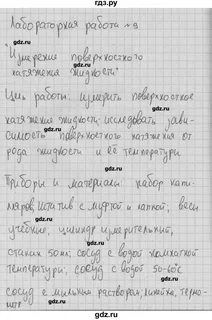 Лабораторная работа №9
"Измерение поверхностного
натяжения жидкости"
Цель работы: измерить поверхностное
натяжение жидкости; исследовать зави-
симость поверхностного натяжения от
рода жидкости и её температуры.
Приборы и материалы: набор капи-
ляров; штатив с муфтой и лапкой; весы
учебные; цилиндр измерительный;
стакан 50 мл; сосуд с водой комнатной
температуры; сосуд с водой 50-60°C
сосуд с мыльным раствором; линейка, термо-
gdz.ru